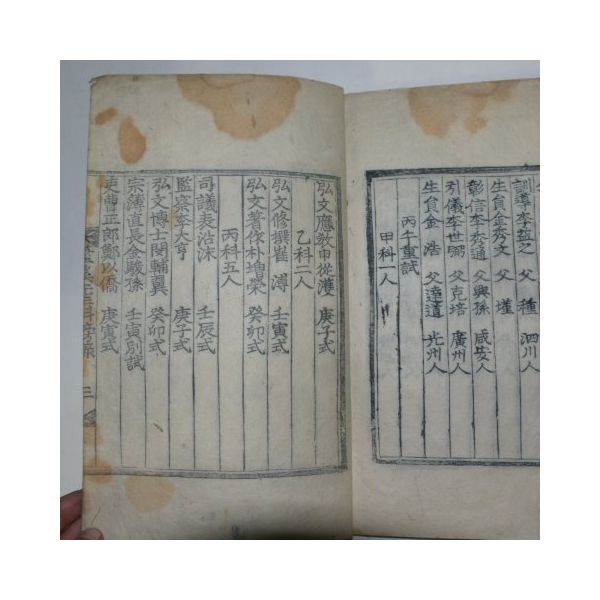 訓導李益之 父種 泗川人
生員金秀文 父墐
彰信李秀通 父興孫 咸安人
引儀李世弼 父克培 廣州人
生員金浩 父達道 光州人
丙午重試
甲科一人
弘文應敎申從濩 庚子式
乙科二人
弘文修撰崔溥 壬寅式
弘文著作朴增榮 癸卯式
丙科五人
司議表沿沫 壬辰式
監察李大亨 庚子式
弘文博士閔輔翼 癸卯式
宗簿直長金駿孫 壬寅別試
吏曹正郎鄭以僑 庚寅式
三